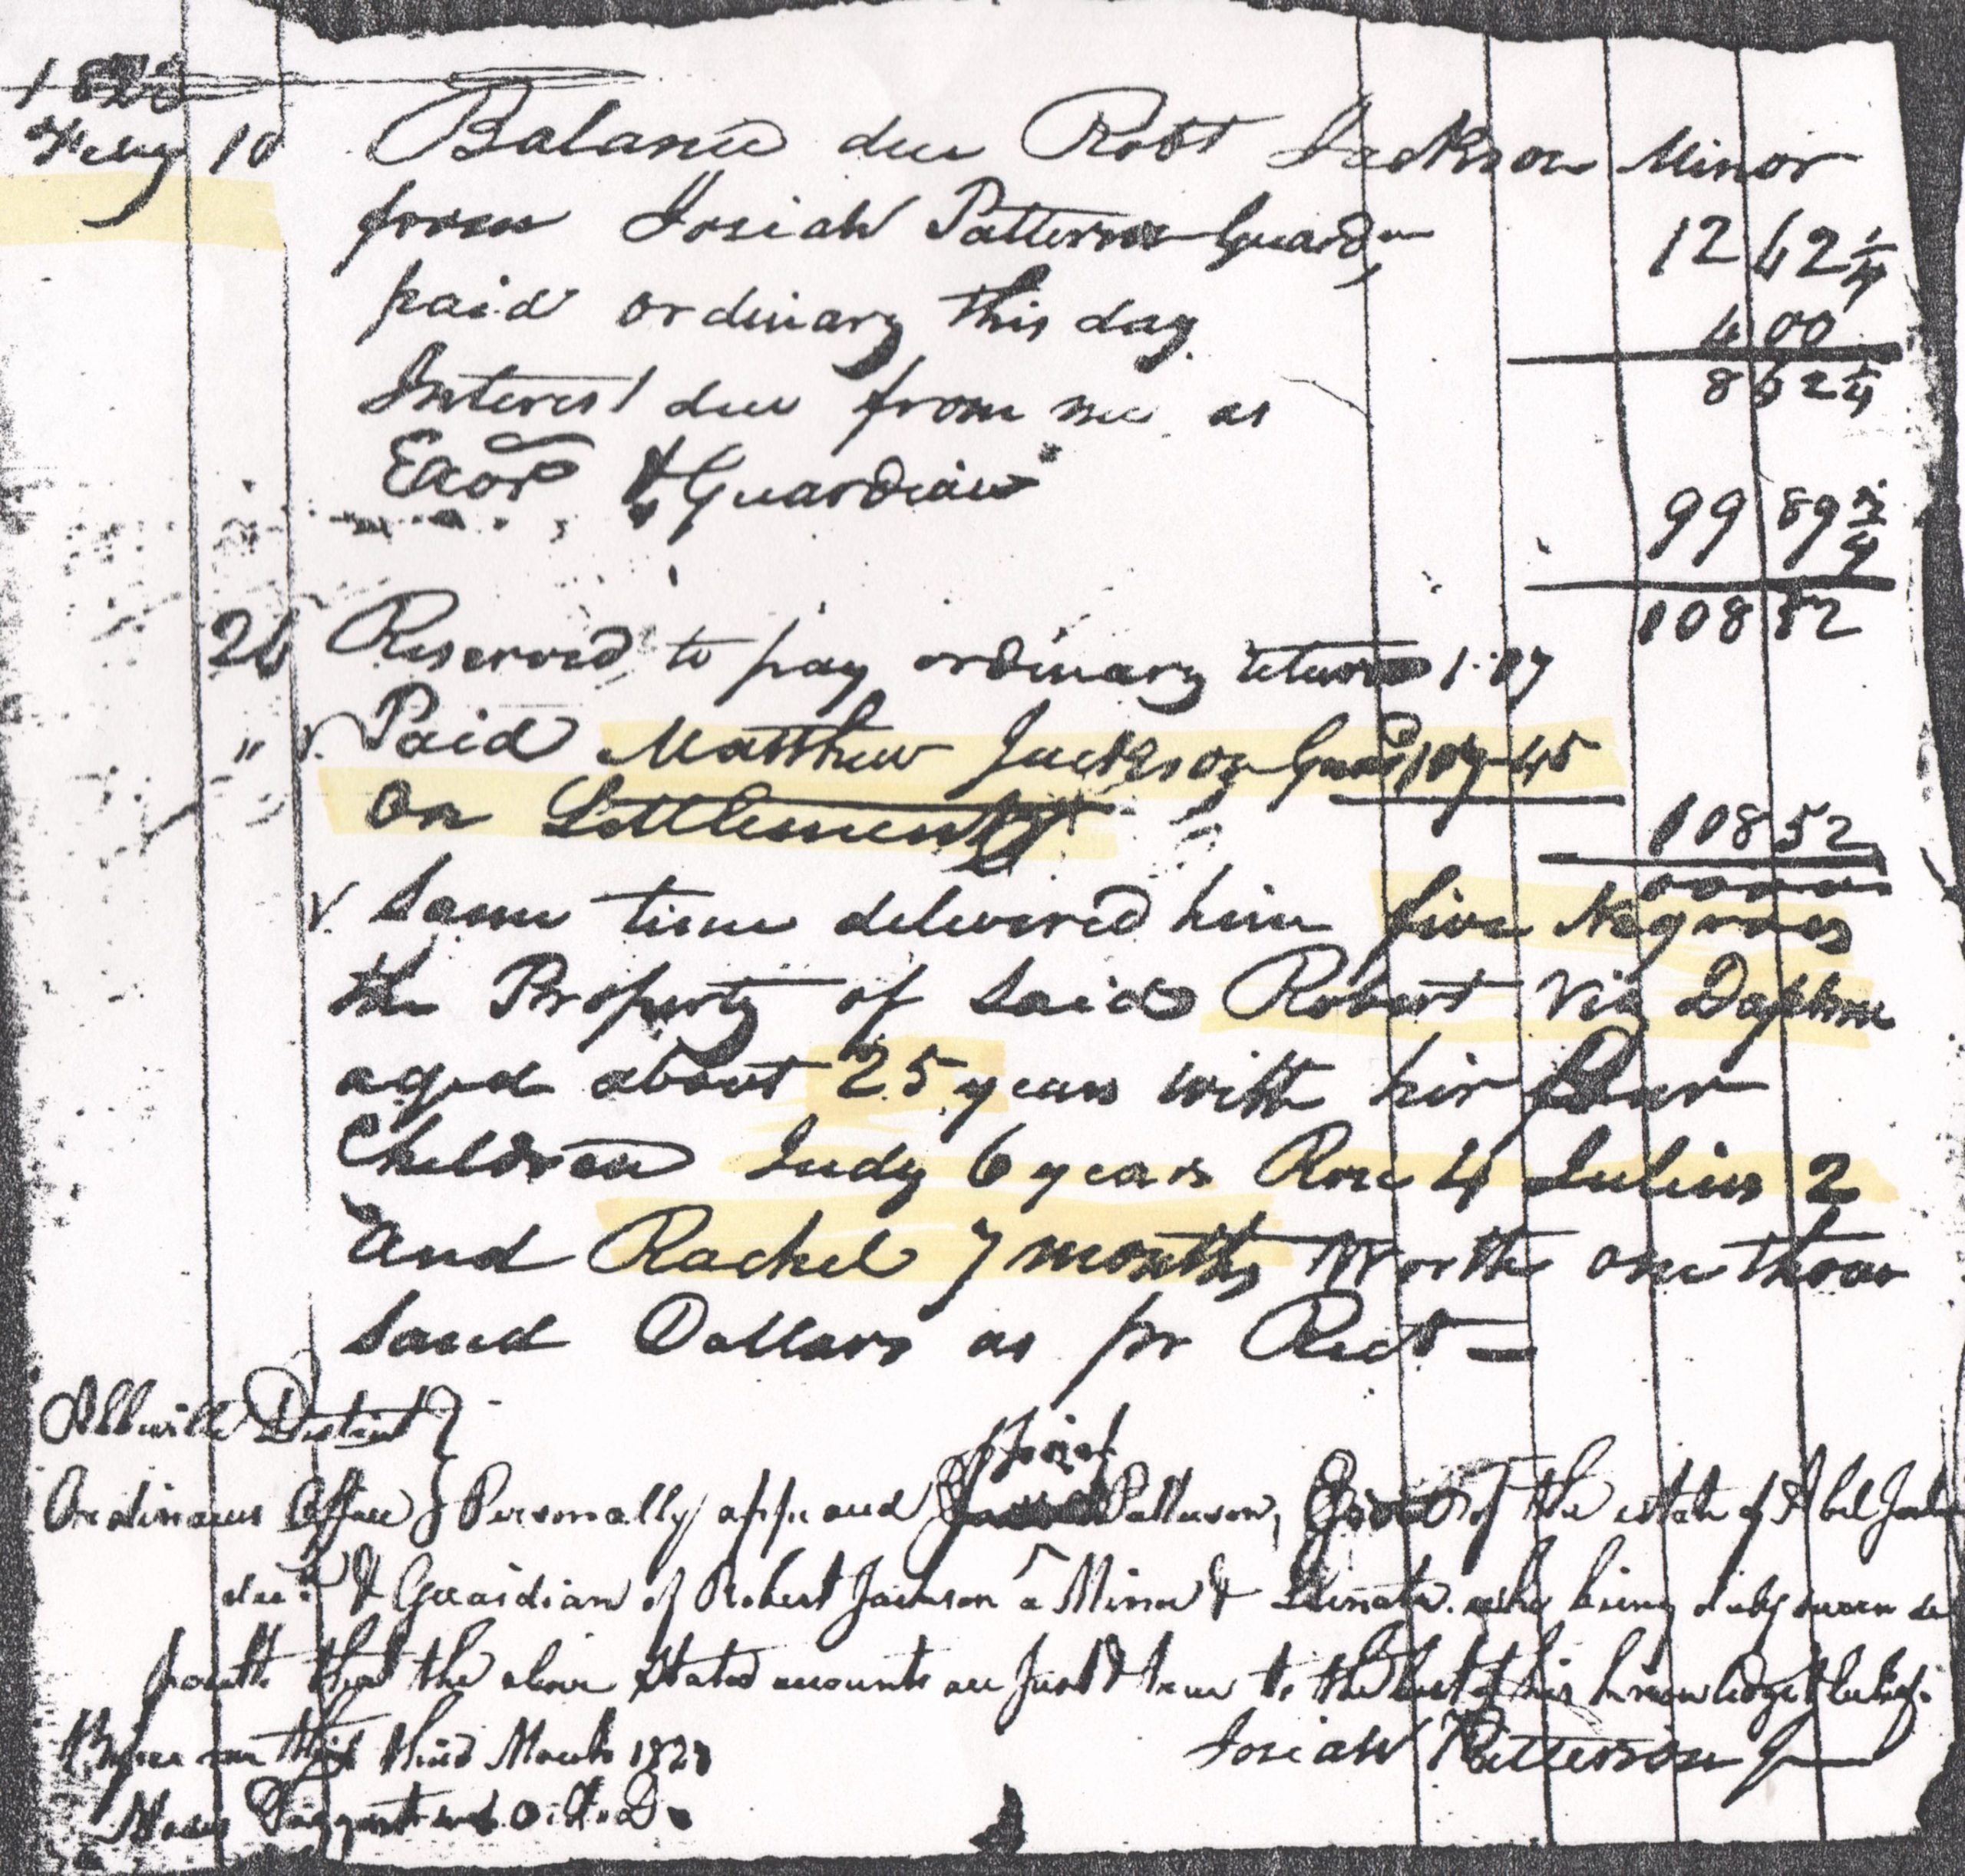 1828
Feby 10 Balance due Robt Jackson Minor
from Josiah Patterson Guardn 12 62 1/4
paid ordinary this day 4 00
8 62 1/4
Interest due from me as
Exor & Guardian 99 89 3/4
108 52
26 Reserved to pay ordinary return 1.07
" V. Paid Matthew Jackson Guard 107.45
on Settlement 108 52
0000
V. Same time delivered him five Negroes
the Property of said Robert Viz Daphne
aged about 25 years with her four
Children Judy 6 years Rose 4 Julius 2
and Rachel 7 months Worth one thou
sand Dollars as pr Rect =
Abbeville District }
Ordinarys Office } Personally appeared Josiah Patterson, Exor of the estate of Abel
decd & Guardian of Robert Jackson a Minor & who being duly sworn de
poseth that the above Stated accounts are Just & true to the best of his knowledge & belief.
Before me this third March 1828
Josiah Patterson Jr
Moses Taggart O. A. D.